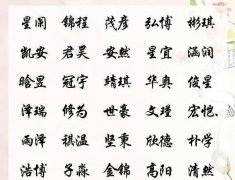 星阑 锦程 茂彦 弘博 彬琪
凯安 君昊 安然 星宜 涵润
晗昱 冠宇 靖琪 华奥 俊星
泽瑞 修为 世豪 文瑾 宏恺、
雨泽 祺温 坚秉 欣德 朴学
浩博 子淼 金锦 高阳 清然